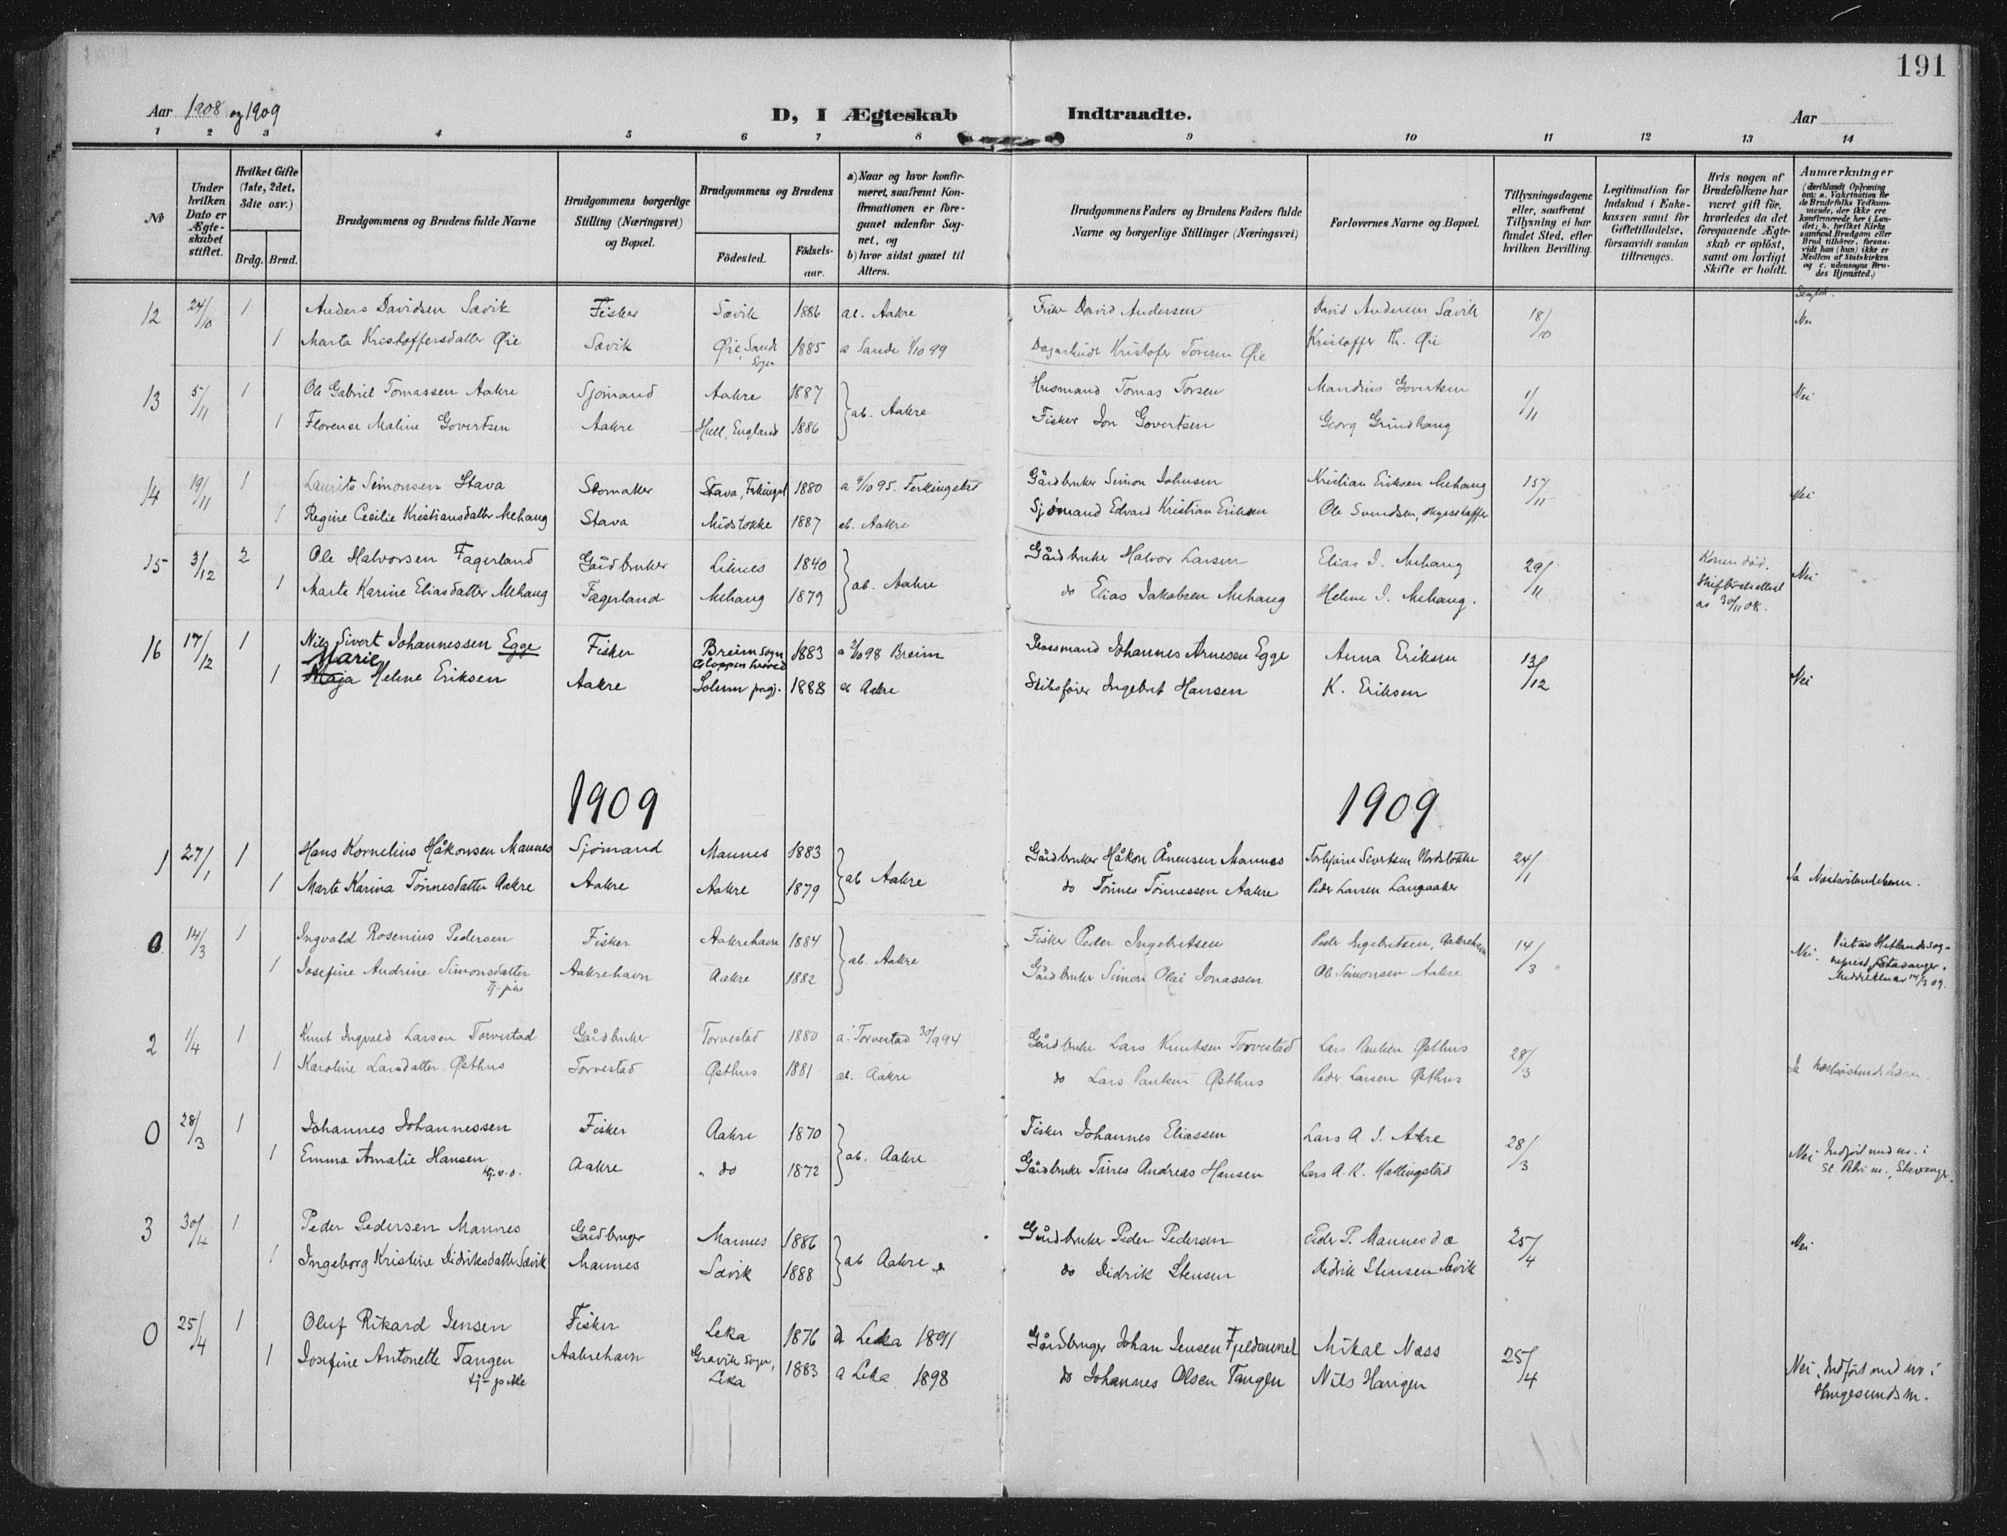 191
Aar 1908 og 1909
D, I Ægteskab Indtraadte.
Aar
1 2 3 4 5 6 7 8 9 10 11 12 13 14
No
Under hvilken Dato er Ægteskabet stiftet.
Hvilket Gifte (1ste, 2det, 3die osv.)
Brdg. Brud.
Brudgommens og Brudens fulde Navne
Brudgommens borgerlige Stilling (Næringsvei) og Bopæl.
Brudgommens og Brudens
Fødested. Fødselsaar.
a) Naar og hvor konfirmeret, saafremt Konfirmationen er foregaaet udenfor Sognet, og
b) hvor sidst gaaet til Alters.
Brudgommens Faders og Brudens Faders fulde Navne og borgerlige Stillinger (Næringsvei)
Forlovernes Navne og Bopæl.
Tillysningsdagene eller, saafremt Tillysning ei har fundet Sted, efter hvilken Bevilling.
Legitimation for Indskud i Enkekassen samt for Giftetilladelse, forsaavidt saadan tiltrænges.
Hvis nogen af Brudefolkene har været gift før, hvorledes da det foregaaende Ægteskab er opløst, samt om lovligt Skifte er holdt.
Anmærkninger
(deriblandt Oplysning om: a. Vakcination for de Brudefolks Vedkommende, der ikke ere konfirmerede her i Landet; b. hvilket Kirkesamfund Brudgom eller Brud tilhører, forsaavidt han (hun) ikke er Medlem af Statskirken og c. udensogns Brudes Hjemsted.)
12 24/10 1 Anders Davidsen Sævik Fisker Sævik 1886 ab. Aakre Fisker David Andersen David Andersen Sævik 18/10 Nei
1 Marta Kristoffersdatter Øie Sævik Øie, Sande Sogn 1885 a Sande 1/10 99 Kristofer Tønesen Øie Kristoffer Th. Øie
13 5/11 1 Ole Gabriel Tomassen Aakre Sjømand Aakre 1887 ab. Aakre Husmand Tomas Torsen Mandius Govertsen 1/11 Nei
1 Florense Maline Govertsen Aakre Hull, England 1886 Fisker Jon Govertsen Georg Grindhaug
14 19/11 1 Laurits Simonsen Stava Skomaker Stava, Ferkingst 1880 a 6/10 95. Ferkingstad Gårdbruker Simon Johnsen Kristian Eriksen Mehaug 15/11 Nei
1 Regine Cecilie Kristiansdatter Mehaug Stava Midstokke 1887 ab. Aakre Sjømand Edvard Kristian Eriksen Ole Svendsen,
15 3/12 2 Ole Halvorsen Fagerland Gårdbruker Liknes 1840 ab. Aakre Gårdbruker Halvor Larsen Elias I. Mehaug 29/11 Konen død. Nei
1 Marte Karine Eliasdatter Mehaug Fagerland Mehaug 1879 do Elias Jakobsen Mehaug Helene I. Mehaug. 30/11 08.
16 17/12 1 Nils Sivert Johannessen Egge Fisker Breim Sogn Gloppen 1883 98 Breim Plassmand Johannes Arnesen Egge Anna Eriksen 13/12
Marie
1 Maja Helene Eriksen Aakre Solum prgj. 1888 ab Aakre Skibsfører Ingebret Hansen K. Eriksen Nei
1909 1909
1 27/1 1 Hans Kornelius Håkonsen Mannes Sjømand Mannes 1883 ab Aakre Gårdbruker Håkon Ånensen Mannes Torbjørn Sivertsen Nordstokke 24/1
1 Marte Karina Tønnesdatter Aakre Aakre Aakre 1879 do Tønnes Tønnessen Aakre Peder Larsen Langaaker
0 14/3 1 Ingvald Rosenius Pedersen Fisker Aakrehavn 1884 ab. Aakre Fisker Peder Ingebretsen Peder Ingebretsen, Aakrehavn 14/3 Nei. Viet i Hetland Stavanger. 14/3 09.
1 Josefine Andrine Simonsdatter Aakrehavn Aakre 1882 Gårdbruker Simon Olai Jonassen Ole Simonsen Aakre
tj-pike
2 1/4 1 Knut Ingvald Larsen Torvestad Gårdbruker Torvestad 1880 a. Torvestad 30/9 94 Gårdbruker Lars Knutsen Torvestad Lars Paulsen Østhus 28/3
1 Karoline Larsdatter Østhus Torvestad Østhus 1881 ab. Aakre do Lars Paulsen Østhus Peder Larsen Østhus
0 28/3 1 Johannes Johannessen Fisker Aakre 1870 ab. Aakre Fisker Johannes Eliassen Lars A. I. Akre 28/3 Nei Indført und nr. i St. Petri m., Stavanger.
1 Emma Amalie Hansen Aakre " do 1872 Gårdbruker Tørres Andreas Hansen Lars A. K. Hallingstad
3 30/4 1 Peder Pedersen Mannes Gårdbruger Mannes 1886 ab Aakre Gårdbruker Peder Pedersen Peder P. Mannes 25/4 Nei
1 Ingeborg Kristine Didriksdatter Sævik Mannes Sævik 1888 do Didrik Stensen Didrik Stensen Sævik
0 25/4 1 Oluf Rikard Jensen Fisker Leka 1876 a Leka 1891 Gårdbruger Johan Jensen Mikal Næss 25/4
1 Josefine Antonette Tangen Aakrehavn Gravik Sogn, Leka 1883 a Leka 1898 do Johannes Olsen Tangen Nils Haugen Nei, Indført und nr i Haugesunds m.
tj-pike